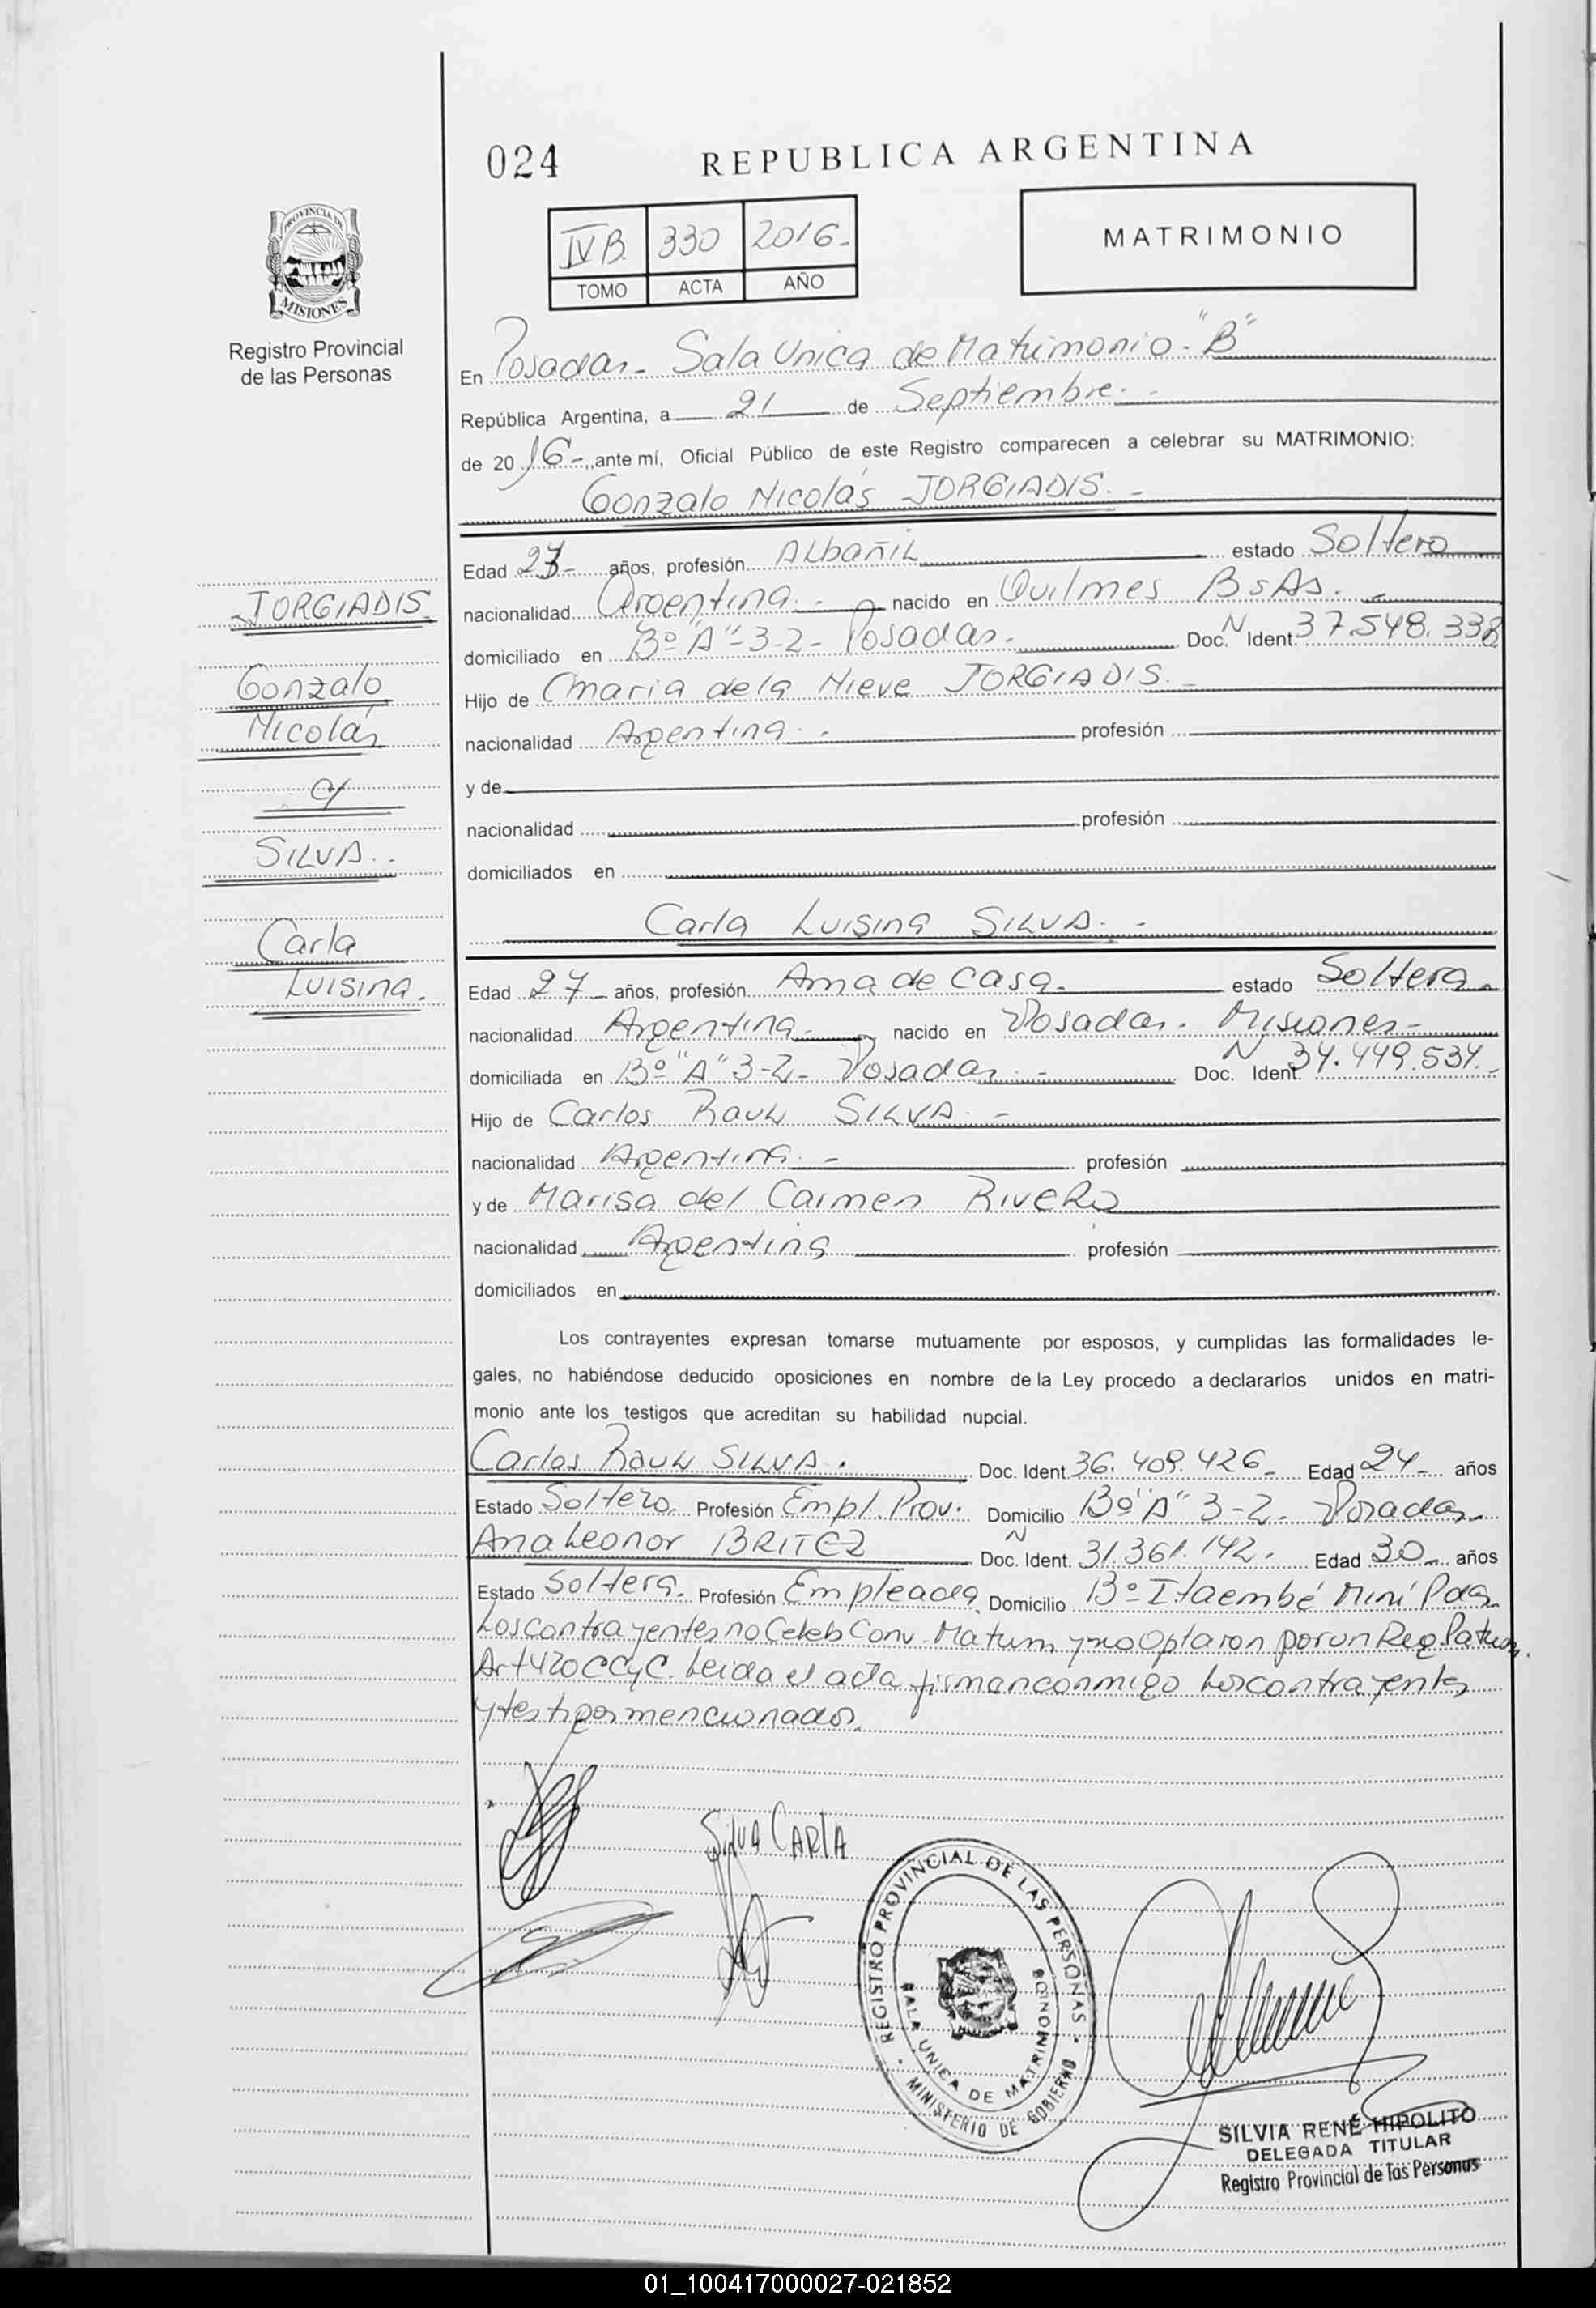 024
REPUBLICA ARGENTINA
PROVINCIA DE
MISIONES
Registro Provincial
de las Personas
IV B. 330 2016.-
TOMO ACTA AÑO
MATRIMONIO
En Posadas.- Sala Unica de Matrimonio.- "B"
República Argentina, a 21 de Septiembre.-
de 2016.-, ante mí, Oficial Público de este Registro comparecen a celebrar su MATRIMONIO:
Gonzalo Nicolás JORGIADIS.-
Edad 23- años, profesión Albañil estado Soltero
nacionalidad Argentina.- nacido en Quilmes Bs As.-
domiciliado en Bº "A"-3-2- Posadas.- Doc. N Ident. 37.548.338
Hijo de Maria dela Nieve JORGIADIS.-
nacionalidad Argentina.- profesión
y de
nacionalidad profesión
domiciliados en
JORGIADIS
Gonzalo
Nicolás
c/
SILVA.-
Carla
Luisina.
Carla Luisina SILVA.-
Edad 27- años, profesión Ama de casa.- estado Soltera.
nacionalidad Argentina.- nacido en Posadas. Misiones-
domiciliada en Bº "A" 3-2- Posadas.- Doc. N Ident. 34.449.534.-
Hijo de Carlos Raul SILVA.-
nacionalidad Argentina.- profesión
y de Marisa del Carmen RIVERO
nacionalidad Argentina profesión
domiciliados en
Los contrayentes expresan tomarse mutuamente por esposos, y cumplidas las formalidades le-
gales, no habiéndose deducido oposiciones en nombre de la Ley procedo a declararlos unidos en matri-
monio ante los testigos que acreditan su habilidad nupcial.
Carlos Raul SILVA. Doc. Ident 36.409.426- Edad 24- años
Estado Soltero. Profesión Empl. Prov. Domicilio Bº "A" 3-2- Posadas.-
Ana Leonor BRITEZ Doc. N Ident. 31.361.142. Edad 30- años
Estado Soltera. Profesión Empleada Domicilio Bº Itaembé Miní Pdas
Los contrayentes no Celeb Conv. Matrim y no Optaron por un Reg Patrim.
Art 420 CCyC. Leida el acta firman conmigo los contrayentes
y testigos mencionados.
Silva CARLA
REGISTRO PROVINCIAL DE LAS PERSONAS
SALA UNICA DE MATRIMONIO
MINISTERIO DE GOBIERNO
SILVIA RENÉ HIPOLITO
DELEGADA TITULAR
Registro Provincial de las Personas
01_100417000027-021852